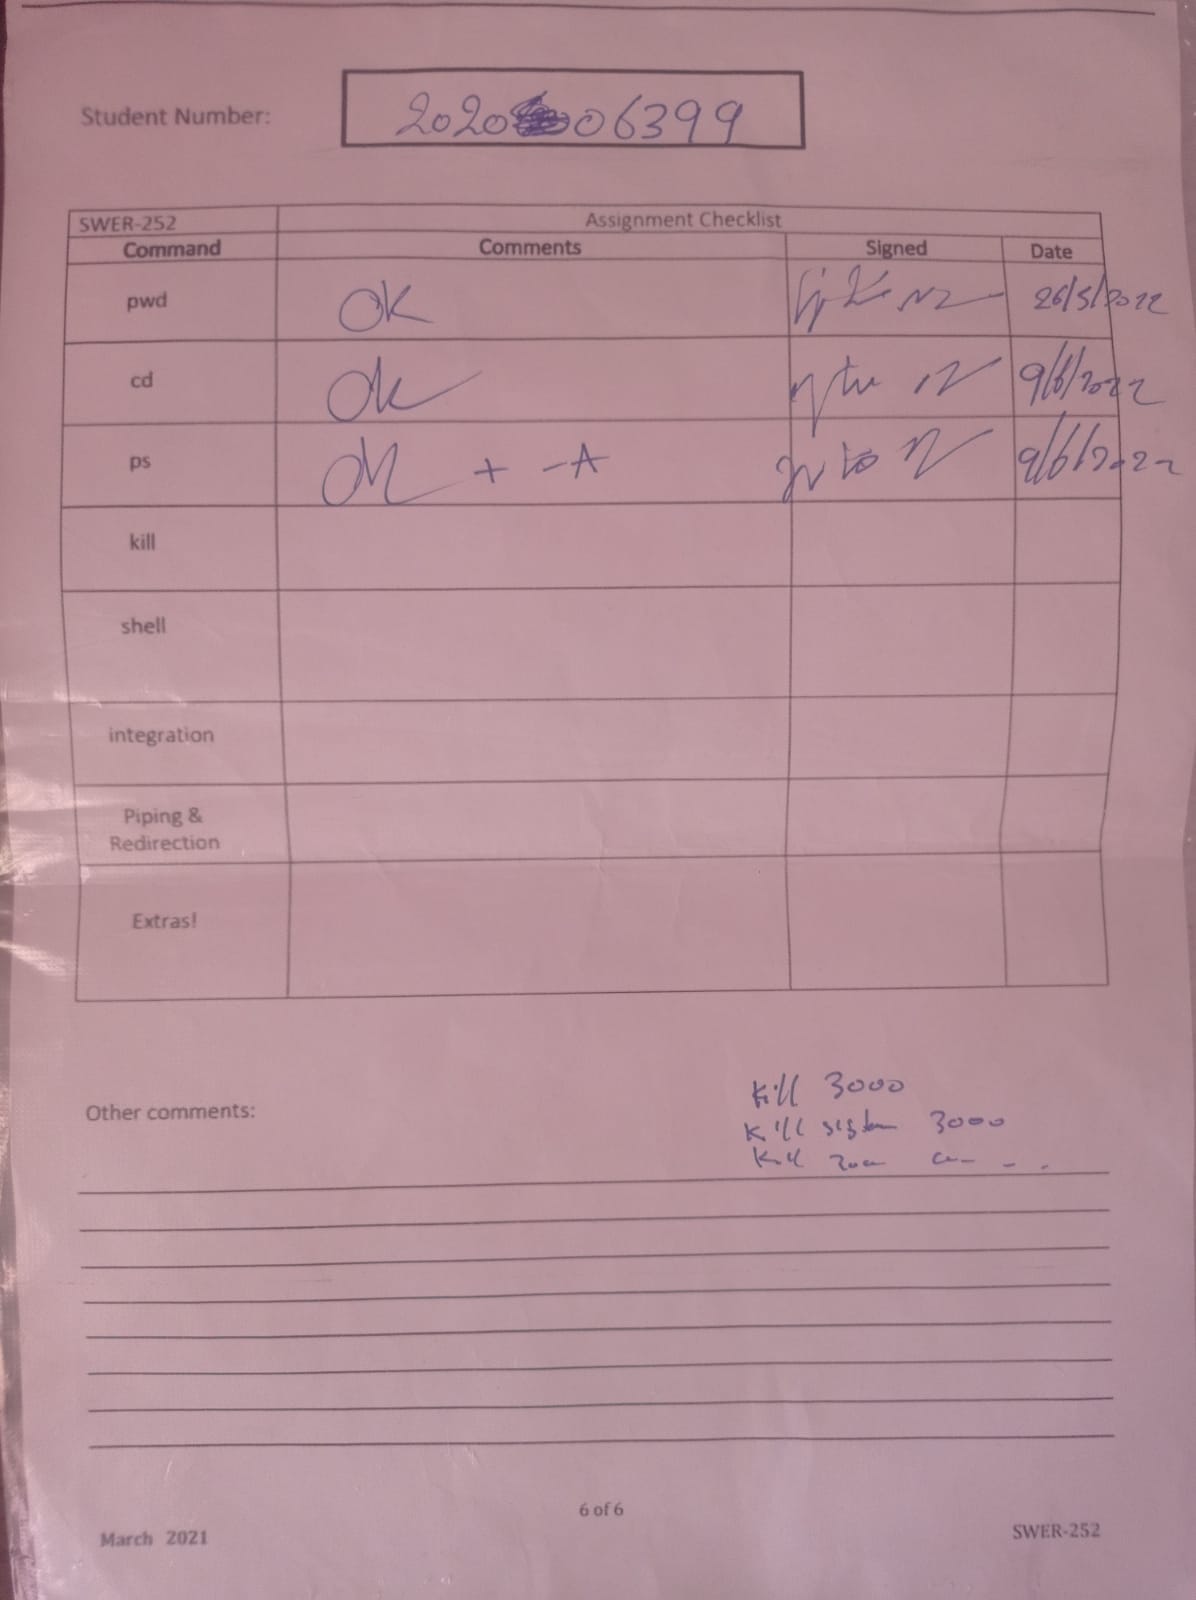 Student Number: 2020 06399
SWER-252 Assignment Checklist
Command Comments Signed Date
pwd OK 26/5/2022
cd Ok 9/6/2022
ps OK + -A 9/6/2022
kill
shell
integration
Piping &
Redirection
Extras!
Kill 3000
Other comments:
Kill 3000
Kill
6 of 6
March 2021 SWER-252